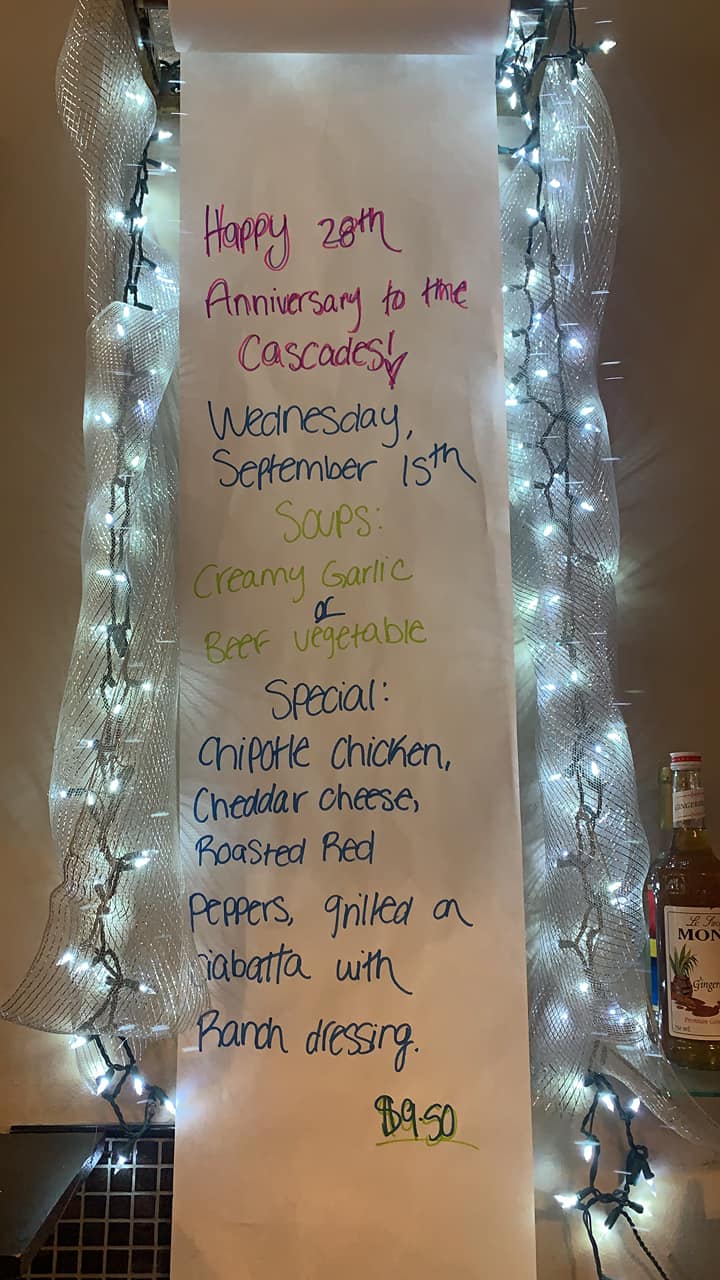 Happy 28th
Anniversary to the
Cascades!
Wednesday,
September 15th
Soups:
Creamy Garlic
or
Beef vegetable
Special:
Chipotle Chicken,
Cheddar cheese,
Roasted Red
Peppers, grilled on
iabatta with
Ranch dressing.
$9.50
GINGER
Le
MON
Ginger
Premium